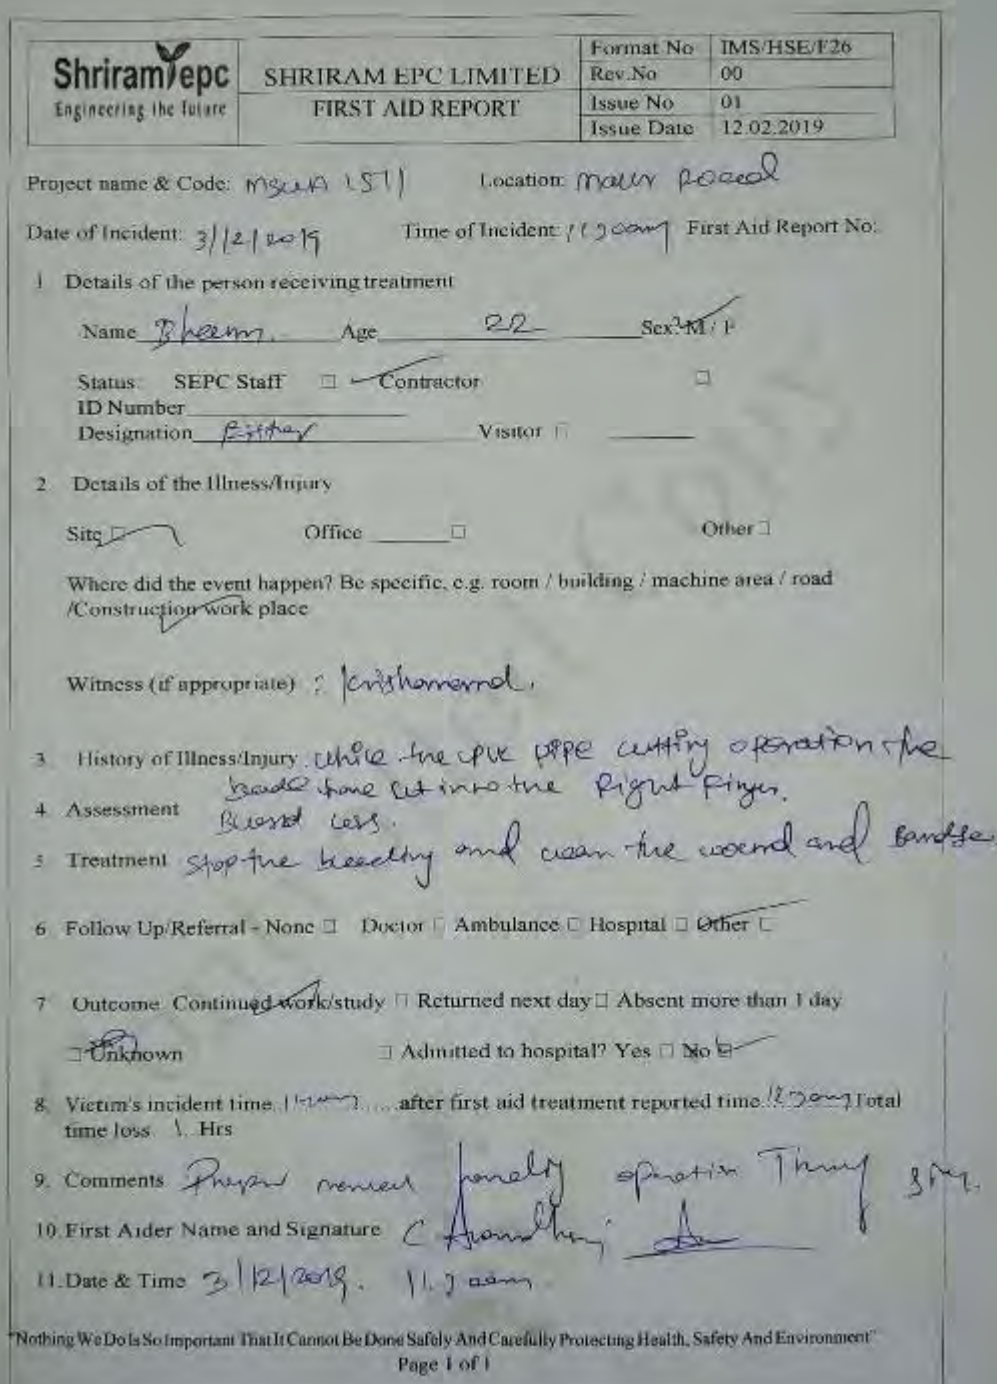 Shriram epc
Engineering the future
SHRIRAM EPC LIMITED
FIRST AID REPORT
Format No IMS/HSE/F26
Rev.No 00
Issue No 01
Issue Date 12.02.2019
Project name & Code: 1511 Location:
Date of Incident: 3/12/2019 Time of Incident: First Aid Report No:
1 Details of the person receiving treatment
Name Bheem. Age 22 Sex? M / F
Status: SEPC Staff Contractor
ID Number
Designation Visitor
2 Details of the Illness/Injury
Site Office Other
Where did the event happen? Be specific, e.g. room / building / machine area / road
/Construction work place
Witness (if appropriate) :
3 History of Illness/Injury while the PIPE cutting operation the
into the Right Finger.
4 Assessment
5 Treatment Stop the bleeding and clean the wound and
6 Follow Up/Referral - None Doctor Ambulance Hospital Other
7 Outcome Continued work/study Returned next day Absent more than 1 day
Unknown Admitted to hospital? Yes No
8. Victim's incident time after first aid treatment reported time Total
time loss 1. Hrs
9. Comments operation
10. First Aider Name and Signature C
11. Date & Time 3/12/2019.
"Nothing We Do Is So Important That It Cannot Be Done Safely And Carefully Protecting Health, Safety And Environment"
Page 1 of 1